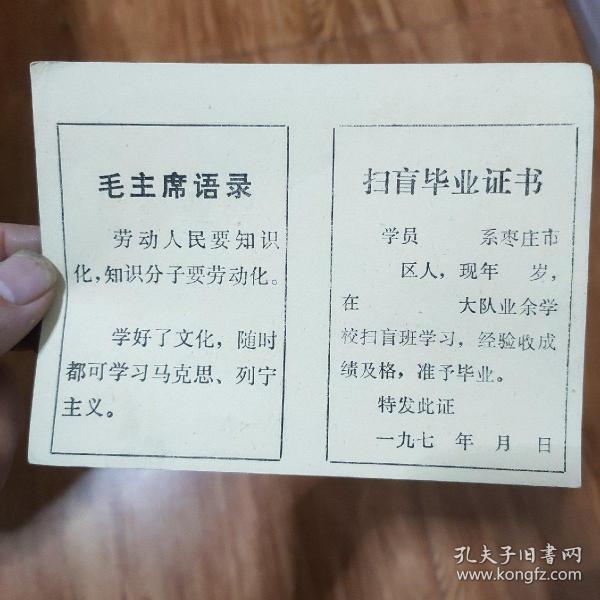 毛主席语录
劳动人民要知识
化，知识分子要劳动化。
学好了文化，随时
都可学习马克思、列宁
主义。
扫盲毕业证书
学员 系枣庄市
区人，现年 岁，
在 大队业余学
校扫盲班学习，经验收成
绩及格，准予毕业。
特发此证
一九七 年 月 日
孔夫子旧书网
www.kongfz.com